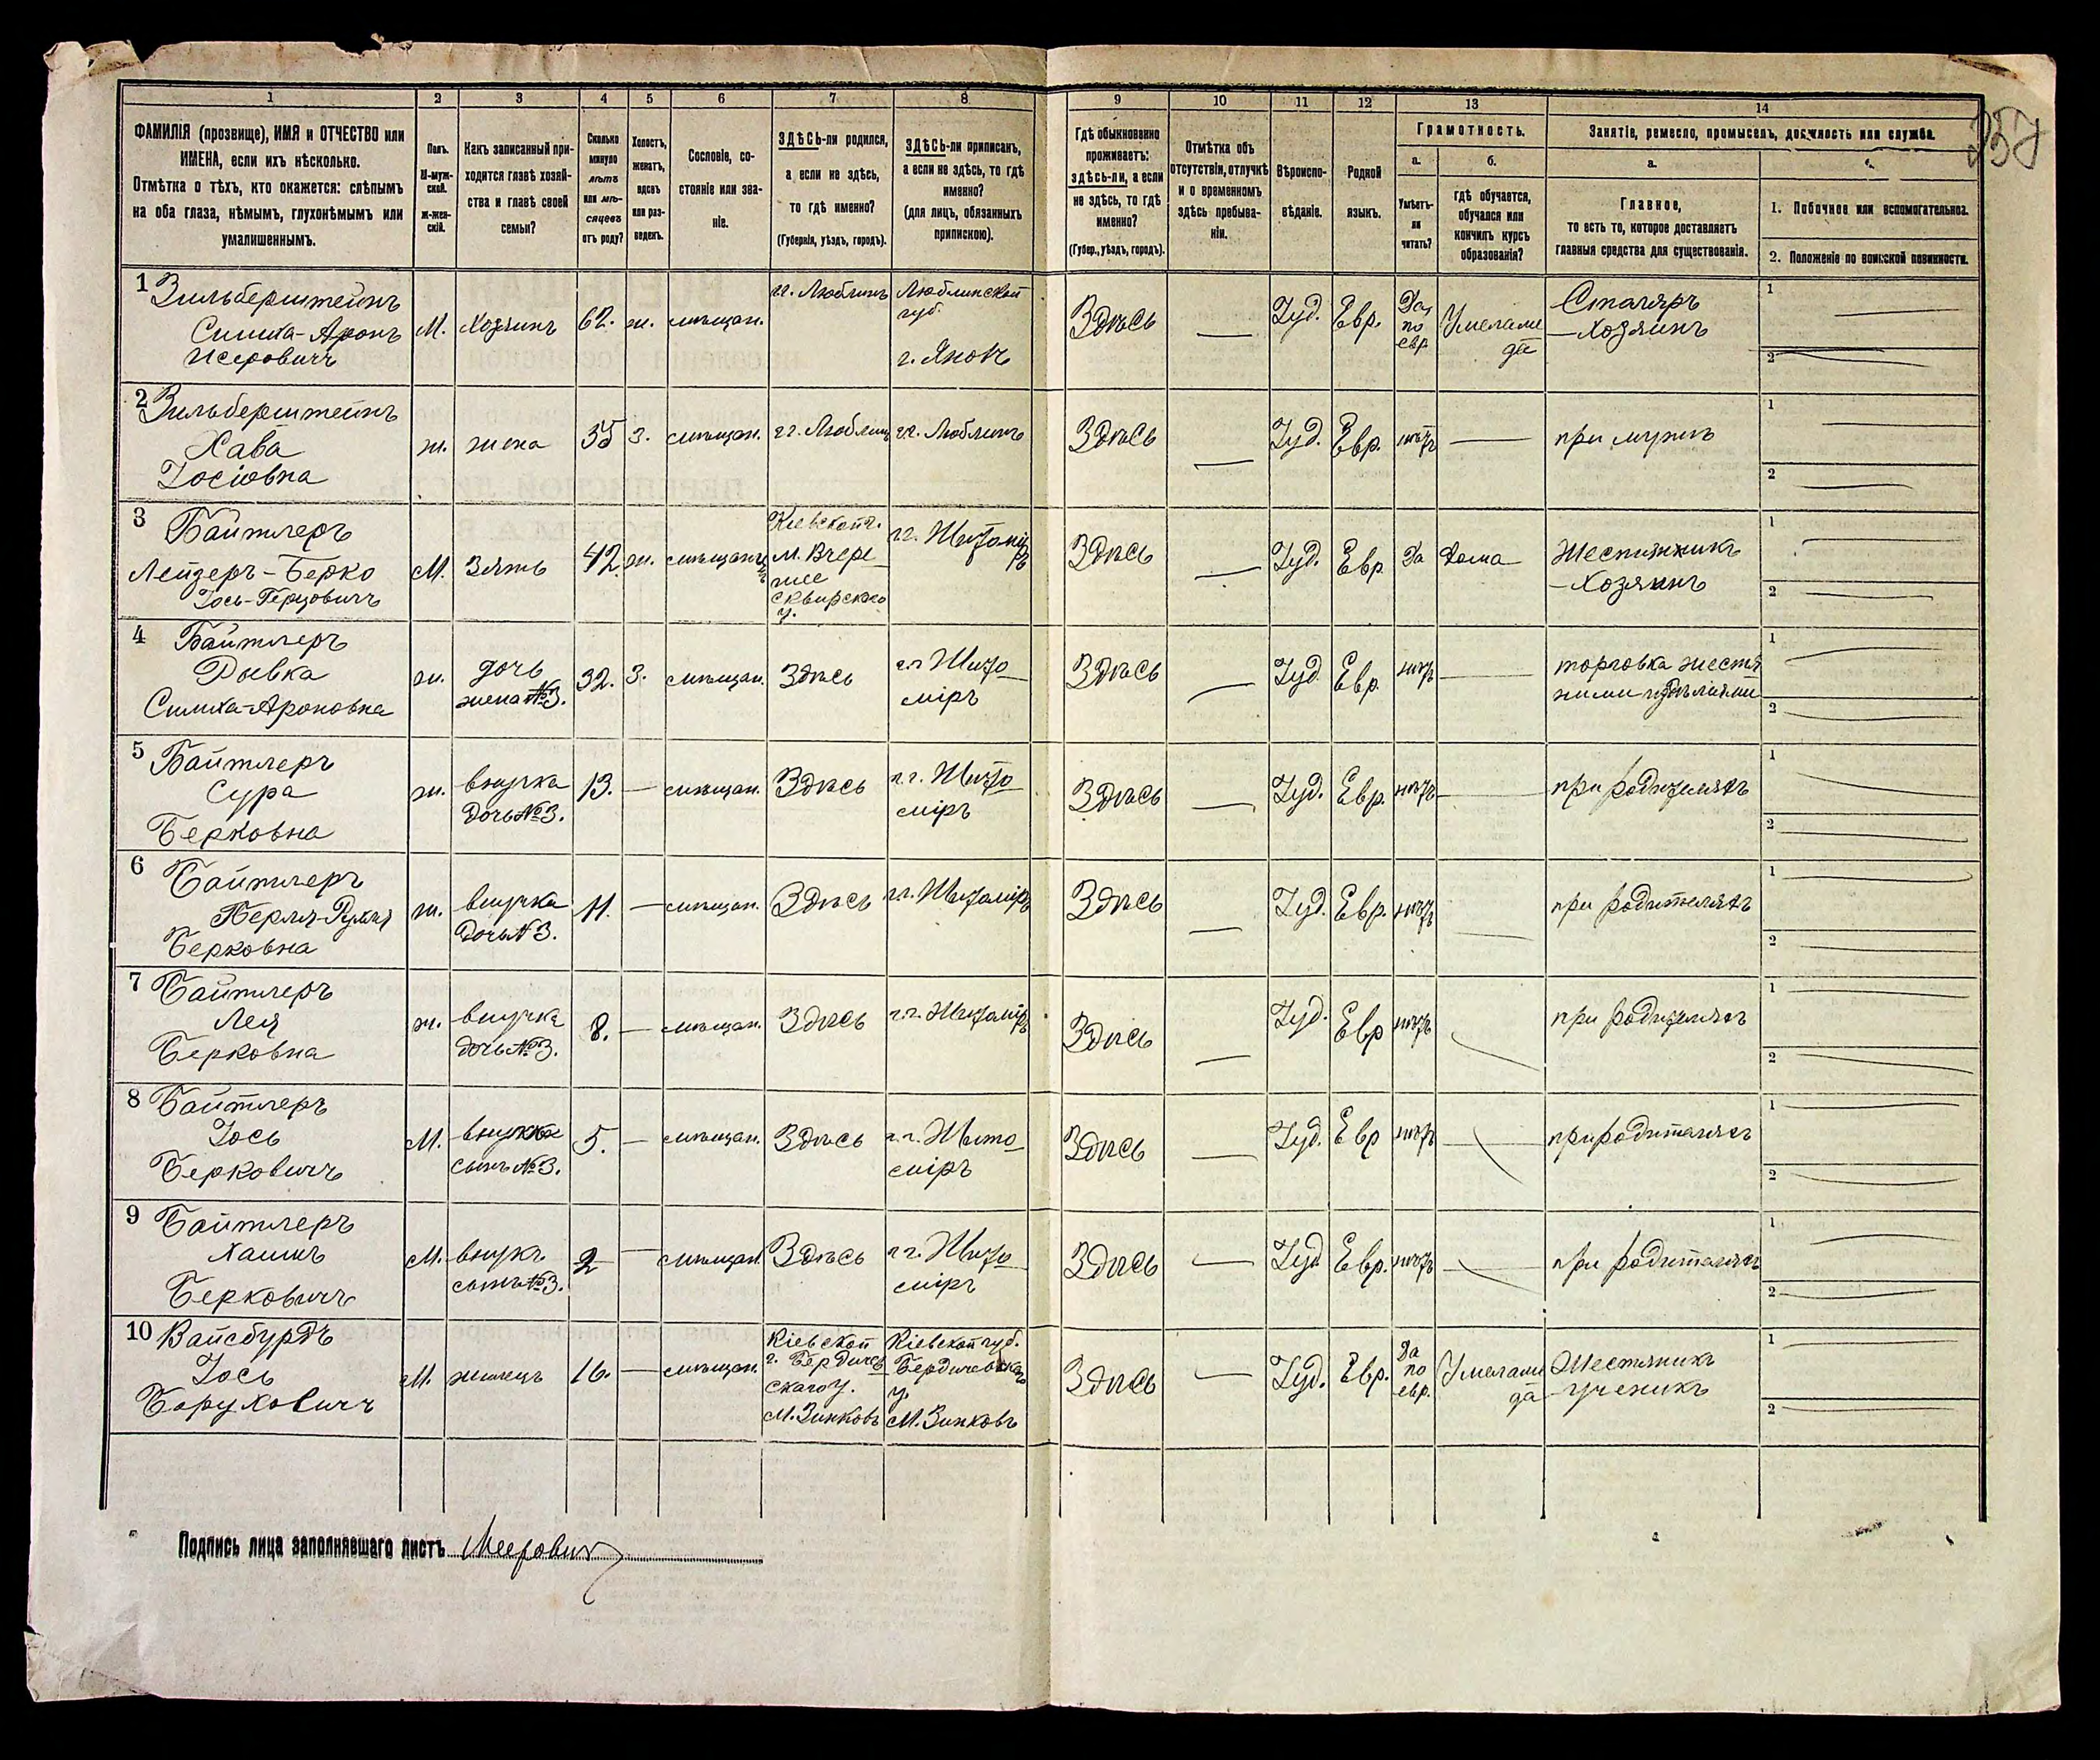 1 2 3 4 5 6 7 8 9 10 11 12 13 14
ФАМИЛІЯ (прозвище), ИМЯ и ОТЧЕСТВО или
ИМЕНА, если ихъ нѣсколько.
Отмѣтка о тѣхъ, кто окажется: слѣпымъ
на оба глаза, нѣмымъ, глухонѣмымъ или
умалишеннымъ.
Полъ.
М-муж-
ской.
Ж-жен-
скій.
Какъ записанный при-
ходится главѣ хозяй-
ства и главѣ своей
семьи?
Сколько
минуло
лѣтъ
или мѣ-
сяцевъ
отъ роду?
Холостъ,
женатъ,
вдовъ
или раз-
веденъ.
Сословіе, со-
стояніе или зва-
ніе.
ЗДѢСЬ-ли родился,
а если не здѣсь,
то гдѣ именно?
(Губернія, уѣздъ, городъ).
ЗДѢСЬ-ли приписанъ,
а если не здѣсь, то гдѣ
именно?
(для лицъ, обязанныхъ
припискою).
Гдѣ обыкновенно
проживаетъ:
здѣсь-ли, а если
не здѣсь, то гдѣ
именно?
(Губер., уѣздъ, городъ).
Отмѣтка объ
отсутствіи, отлучкѣ
и о временномъ
здѣсь пребыва-
ніи.
Вѣроиспо-
вѣданіе.
Родной
языкъ.
Грамотность.
а.
Умѣетъ-
ли
читать?
б.
гдѣ обучается,
обучался или
кончилъ курсъ
образованія?
Занятіе, ремесло, промыселъ, должность или служба.
а.
Главное,
то есть то, которое доставляетъ
главныя средства для существованія.
1. Побочное или вспомогательное.
2. Положеніе по воинской повинности.
337
1 Зильберштейнъ
Симха-Аронъ
Исеровичъ
М. хозяинъ 62. ж. мѣщан. гг. Люблинъ
Люблинской
губ.
г. Яновъ
Здѣсь — Іуд. Евр.
Да,
по
евр
Столяръ
—хозяинъ
1 —
2 —
2 Зильберштейнъ
Хава
Іосіовна
ж. жена 35 з. мѣщан. гг. Люблинъ гг. Люблинъ Здѣсь — Іуд. Евр. нѣтъ — при мужѣ
1
2 —
3 Байтлеръ
Лейзеръ-Берко
Іось-Герцовичъ
М. Зять 42. ж. мѣщанинъ
Кіевской г.
м. Вчерай-
сквирскаго
у.
гг. Житоміръ
Здѣсь — Іуд. Евр Да дома
Жестянникъ
—хозяинъ
1 —
2 —
4 Байтлеръ
Ривка
Симха-Ароновна
ж. дочь
жена №3.
32. з. мѣщан. Здѣсь
гг Жито-
міръ
Здѣсь — Іуд Евр. нѣтъ —
торговка жестя-
ными издѣліями
1 —
2 —
5 Байтлеръ
Сура
Берковна
ж. внучка
дочь №3.
13. — мѣщан. Здѣсь
гг. Жито-
міръ
Здѣсь — Іуд. Евр. нѣтъ — при родителяхъ
1 —
2 —
6 Байтлеръ
Перля-Рухля
Берковна
ж. внучка
дочь № 3.
11. — мѣщан. Здѣсь гг. Житоміръ Здѣсь — Іуд. Евр. нѣтъ — при родителяхъ
1 —
2 —
7 Байтлеръ
Лея
Берковна
ж. внучка
дочь №3.
8. — мѣщан. Здѣсь гг. Житоміръ Здѣсь — Іуд. Евр нѣтъ при родителяхъ
1 —
2 —
8 Байтлеръ
Іось
Берковичъ
М. внукъ
сынъ №3.
5. — мѣщан. Здѣсь
гг. Жито-
міръ
Здѣсь — Іуд. Евр нѣтъ — при родителяхъ
1 —
2 —
9 Байтлеръ
Хаимъ
Берковичъ
М. внукъ
сынъ №3.
2 — мѣщан. Здѣсь
гг. Жито-
міръ
Здѣсь — Іуд Евр. нѣтъ — при родителяхъ
1 —
2 —
10 Вайсбурдъ
Іось
Боруховичъ
М. жилецъ 16. — мѣщан.
Кіевской
г. Бердичев-
скаго у.
м. Зинковъ
Кіевской губ.
Бердичевскаго
у.
м. Зинковъ
Здѣсь — Іуд. Евр.
Да
по
евр.
Жестяникъ
—ученикъ
1 —
2 —
Подпись лица заполнявшаго листъ Меерович